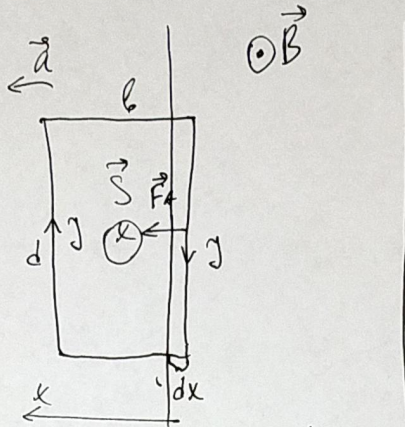 a⃗
B⃗
b
S⃗ F⃗A
x
d J J
dx
x